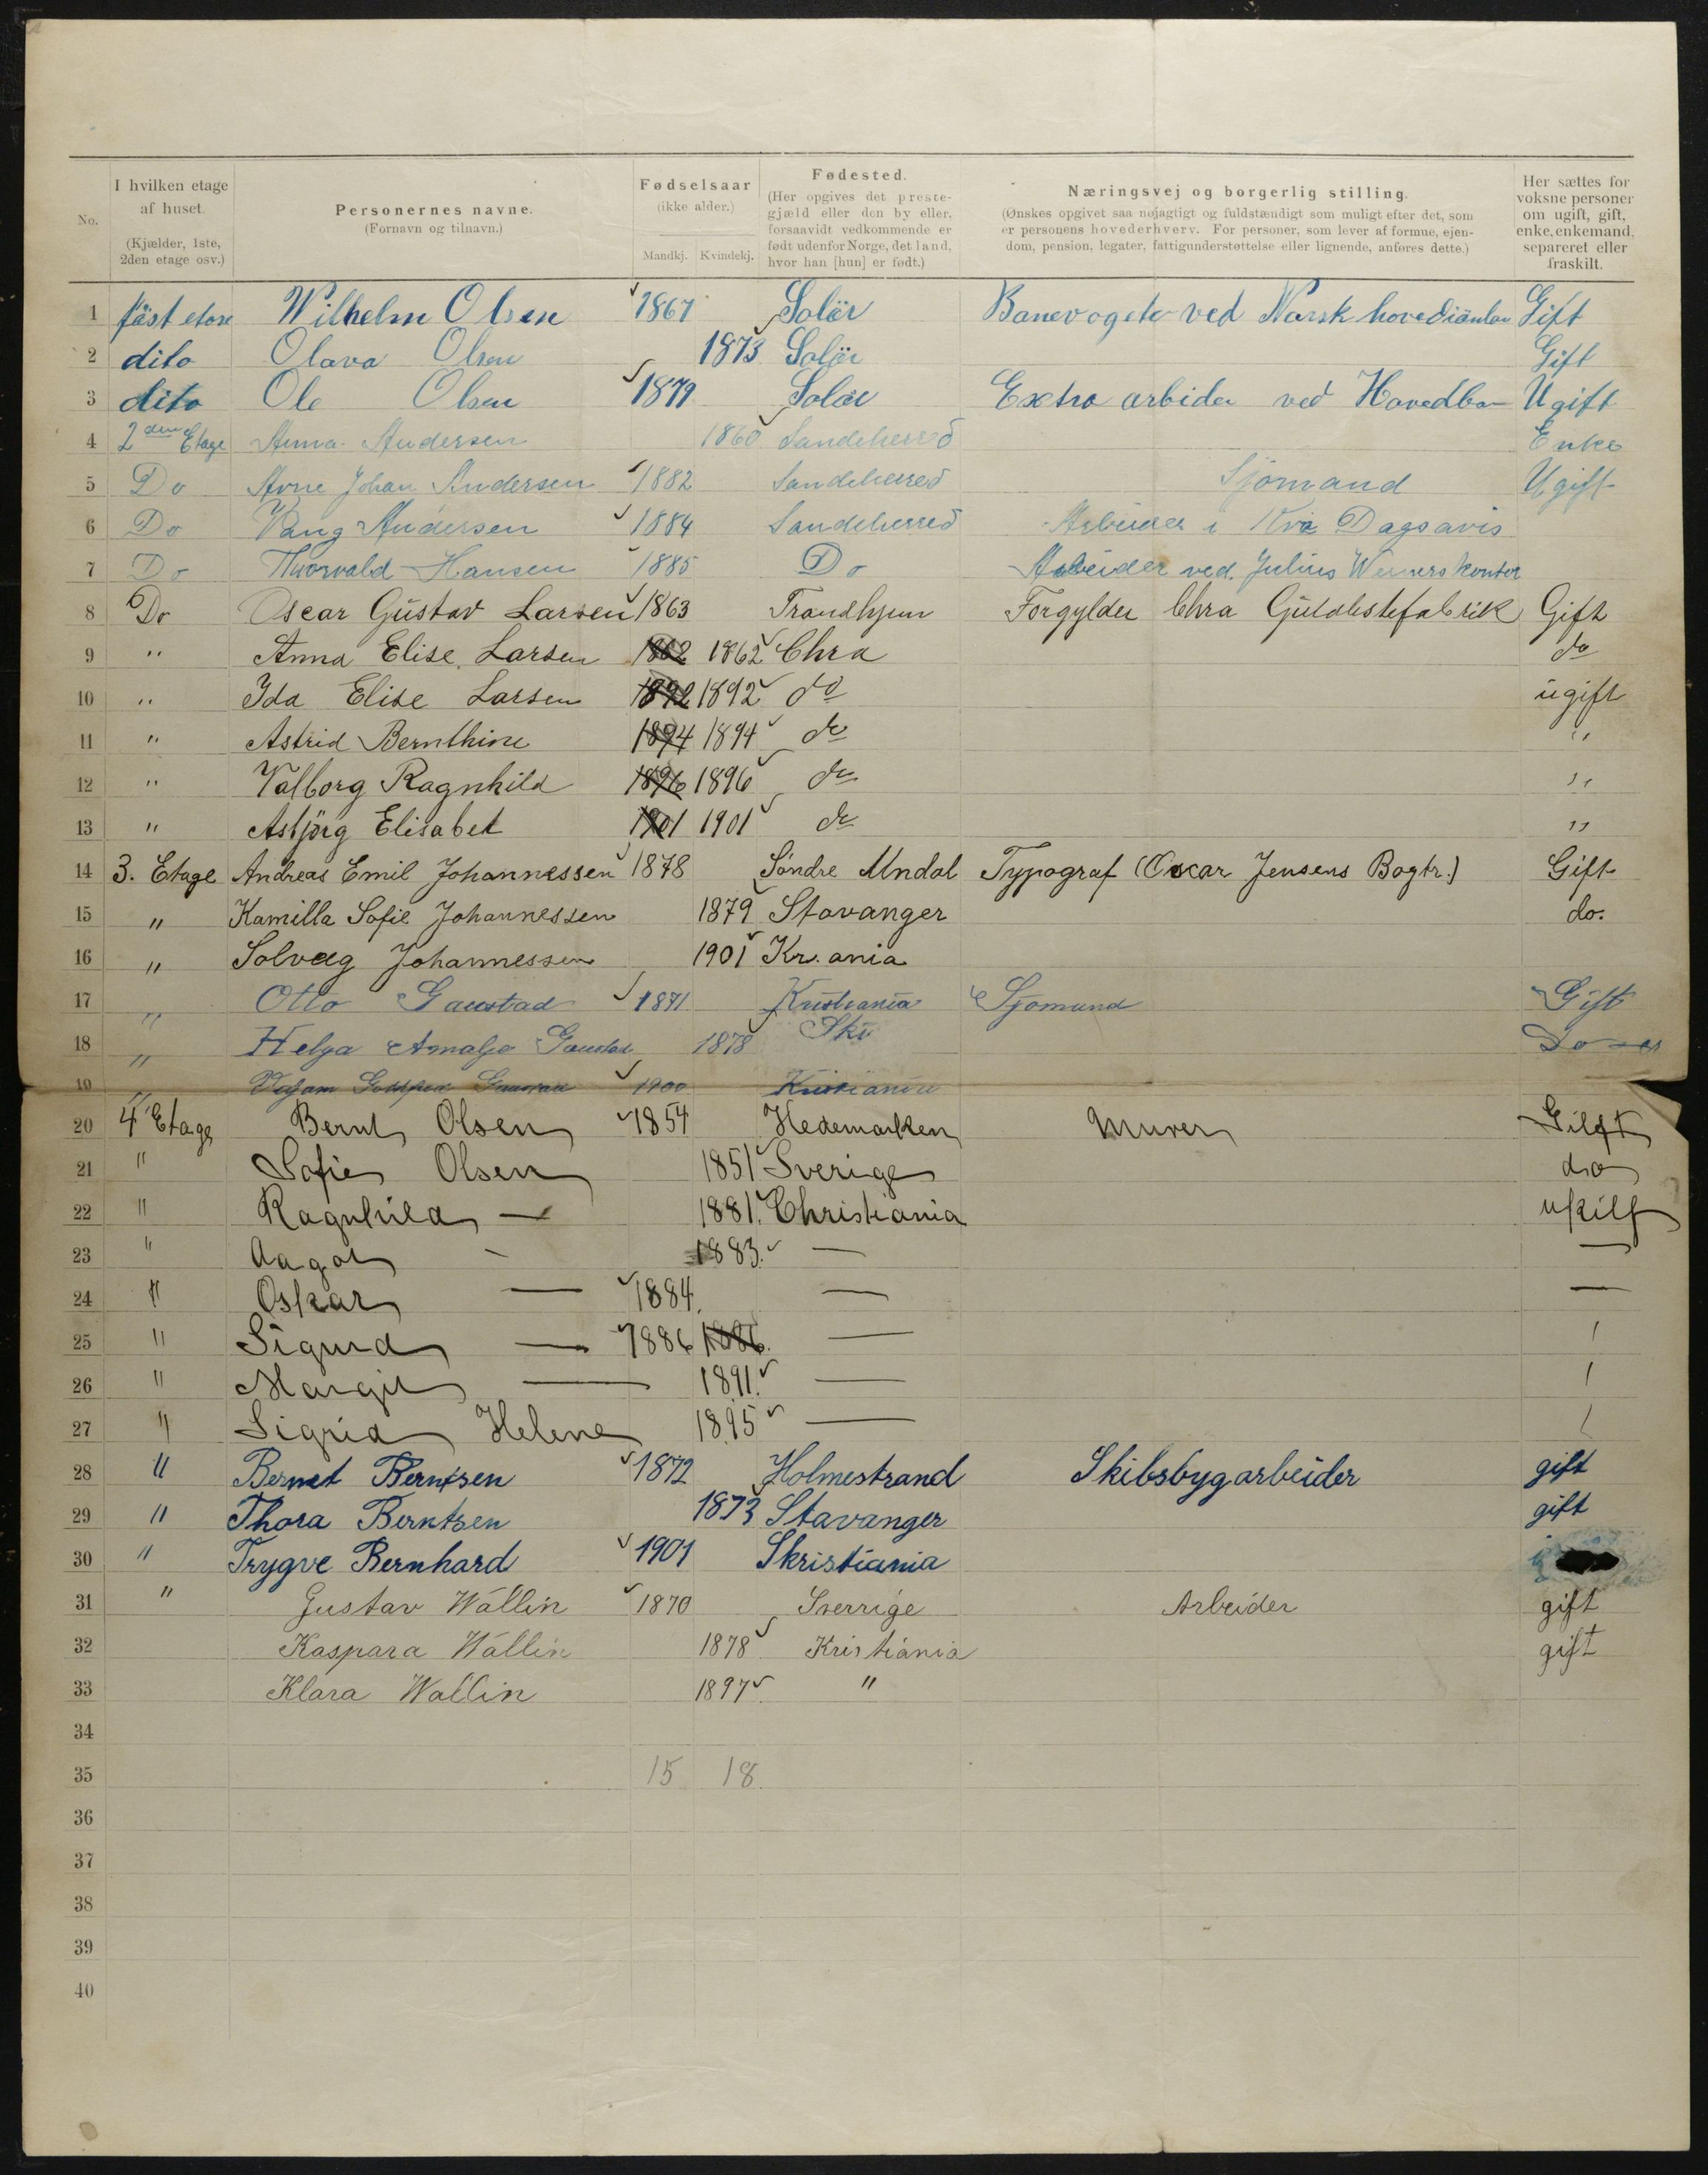 No.
I hvilken etage af huset. (Kjælder, 1ste, 2den etage osv.)
Personernes navne. (Fornavn og tilnavn.)
Fødselsaar (ikke alder.) Mandkj. Kvindekj.
Fødested. (Her opgives det prestegjæld eller den by eller, forsaavidt vedkommende er født udenfor Norge, det land, hvor han [hun] er født.)
Næringsvej og borgerlig stilling. (Ønskes opgivet saa nøjagtigt og fuldstændigt som muligt efter det, som er personens hovederhverv. For personer, som lever af formue, ejendom, pension, legater, fattigunderstøttelse eller lignende, anføres dette.)
Her sættes for voksne personer om ugift, gift, enke, enkemand, separeret eller fraskilt.
1 Wilhelm Olsen 1867 Solör ved Norsk Gift
2 dito Olava Olsen 1873 Solör Gift
3 dito Ole Olsen 1879 Solör Extra arbider ved Hovedba Ugift
4 2den Etage Anna Andersen 1860 Sandeherred Enke
5 Do Arne Johan Andersen 1882 Sandeherred Sjömand Ugift
6 Do Vang Andersen 1884 Sandeherred Arbeider i Kra Dagsavis
7 Do Thorvald Hansen 1885 Do Arbeider ved. Julius Weiners kontor
8 Do Oscar Gustav Larsen 1863 Trondhjem Forgylder Chra Guldlistefabrik Gift
9 " Anna Elise Larsen 1862 1862 Chra do
10 " Ida Elise Larsen 1892 1892 do ugift
11 " Astrid Bernthine 1894 1894 do "
12 " Valborg Ragnhild 1896 1896 do "
13 " Asbjörg Elisabet 1901 1901 do "
14 3. Etage Andreas Emil Johannessen 1878 Söndre Undal Typograf (Oscar Jensens Bogtr.) Gift
15 " Kamilla Sofie Johannessen 1879 Stavanger do.
16 " Solveig Johannessen 1901 Kr.ania
17 " Otto Gaustad 1871 Kristiania Sjömand Gift
18 " Helga Amalje Gaustad 1878 Ski Do
19 " 1900 Kristiania
20 4 Etage Bernt Olsen 1854 Hedemarken Murer Gift
21 " Sofie Olsen 1851 Sverige do
22 " Ragnhild — 1881. Christiania
23 " Aagot - 1883. — —
24 " Oskar — 1884. — —
25 " Sigurd — 1886 1886. —
26 " Margit — 1891. —
27 " Sigrid Helene 1895 —
28 " Bernt Berntsen 1872 Holmestrand Skibsbygarbeider gift
29 " Thora Berntsen 1873 Stavanger gift
30 " Trygve Bernhard 1901 Skristiania
31 " Gustav Wallin 1870 Sverrige Arbeider gift
32 Kaspara Wallin 1878 Kristiania gift
33 Klara Wallin 1897 "
34
35 15 18
36
37
38
39
40